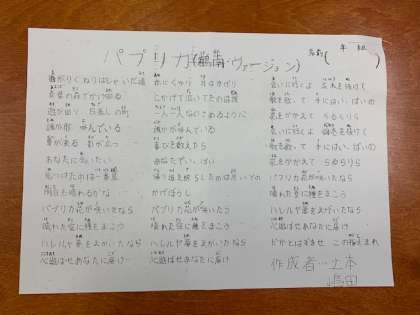 年 組
名前( )
パプリカ(鵠南・ヴァージョン)
曲がりくねりはしゃいだ道
青葉の森でかけ回る
遊び回り 日差しの町
誰かが呼んでいる
夏が来る 影が立つ
あなたに会いたい
見つけたのは一番星
明日も晴れるかな
パプリカ花が咲いたなら
晴れた空に種をまこう
ハレルヤ夢をえがいたなら
心遊ばせあなたに届け
雨にくゆり 月はかげり
こかげで泣いてたのは誰
一人一人なぐさめるように
誰かが呼んでいる
喜びを数えたら
あなたでいっぱい
帰り道を照らしたのは思いでの
かげぼうし
パプリカ花が咲いたら
晴れた空に種をまこう
ハレルヤ夢をえがいたなら
心遊ばせあなたに届け
会いに行くよ 並木を抜けて
歌を歌って 手にはいっぱいの
花をかかえて らるらりら
会いに行くよ
歌を歌って 手にはいっぱいの
花をかかえて らるらりら
パプリカ花が咲いたなら
晴れた空に種をまこう
ハレルヤ夢をえがいたなら
心遊ばせあなたに届け
かかとはずませ この指とまれ
作成者…土本
嶋田